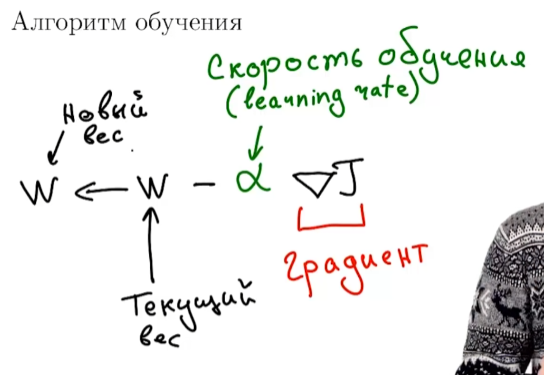 Алгоритм обучения
Скорость обучения
(learning rate)
Новый
вес
W ← W − α ∇J
градиент
Текущий
вес